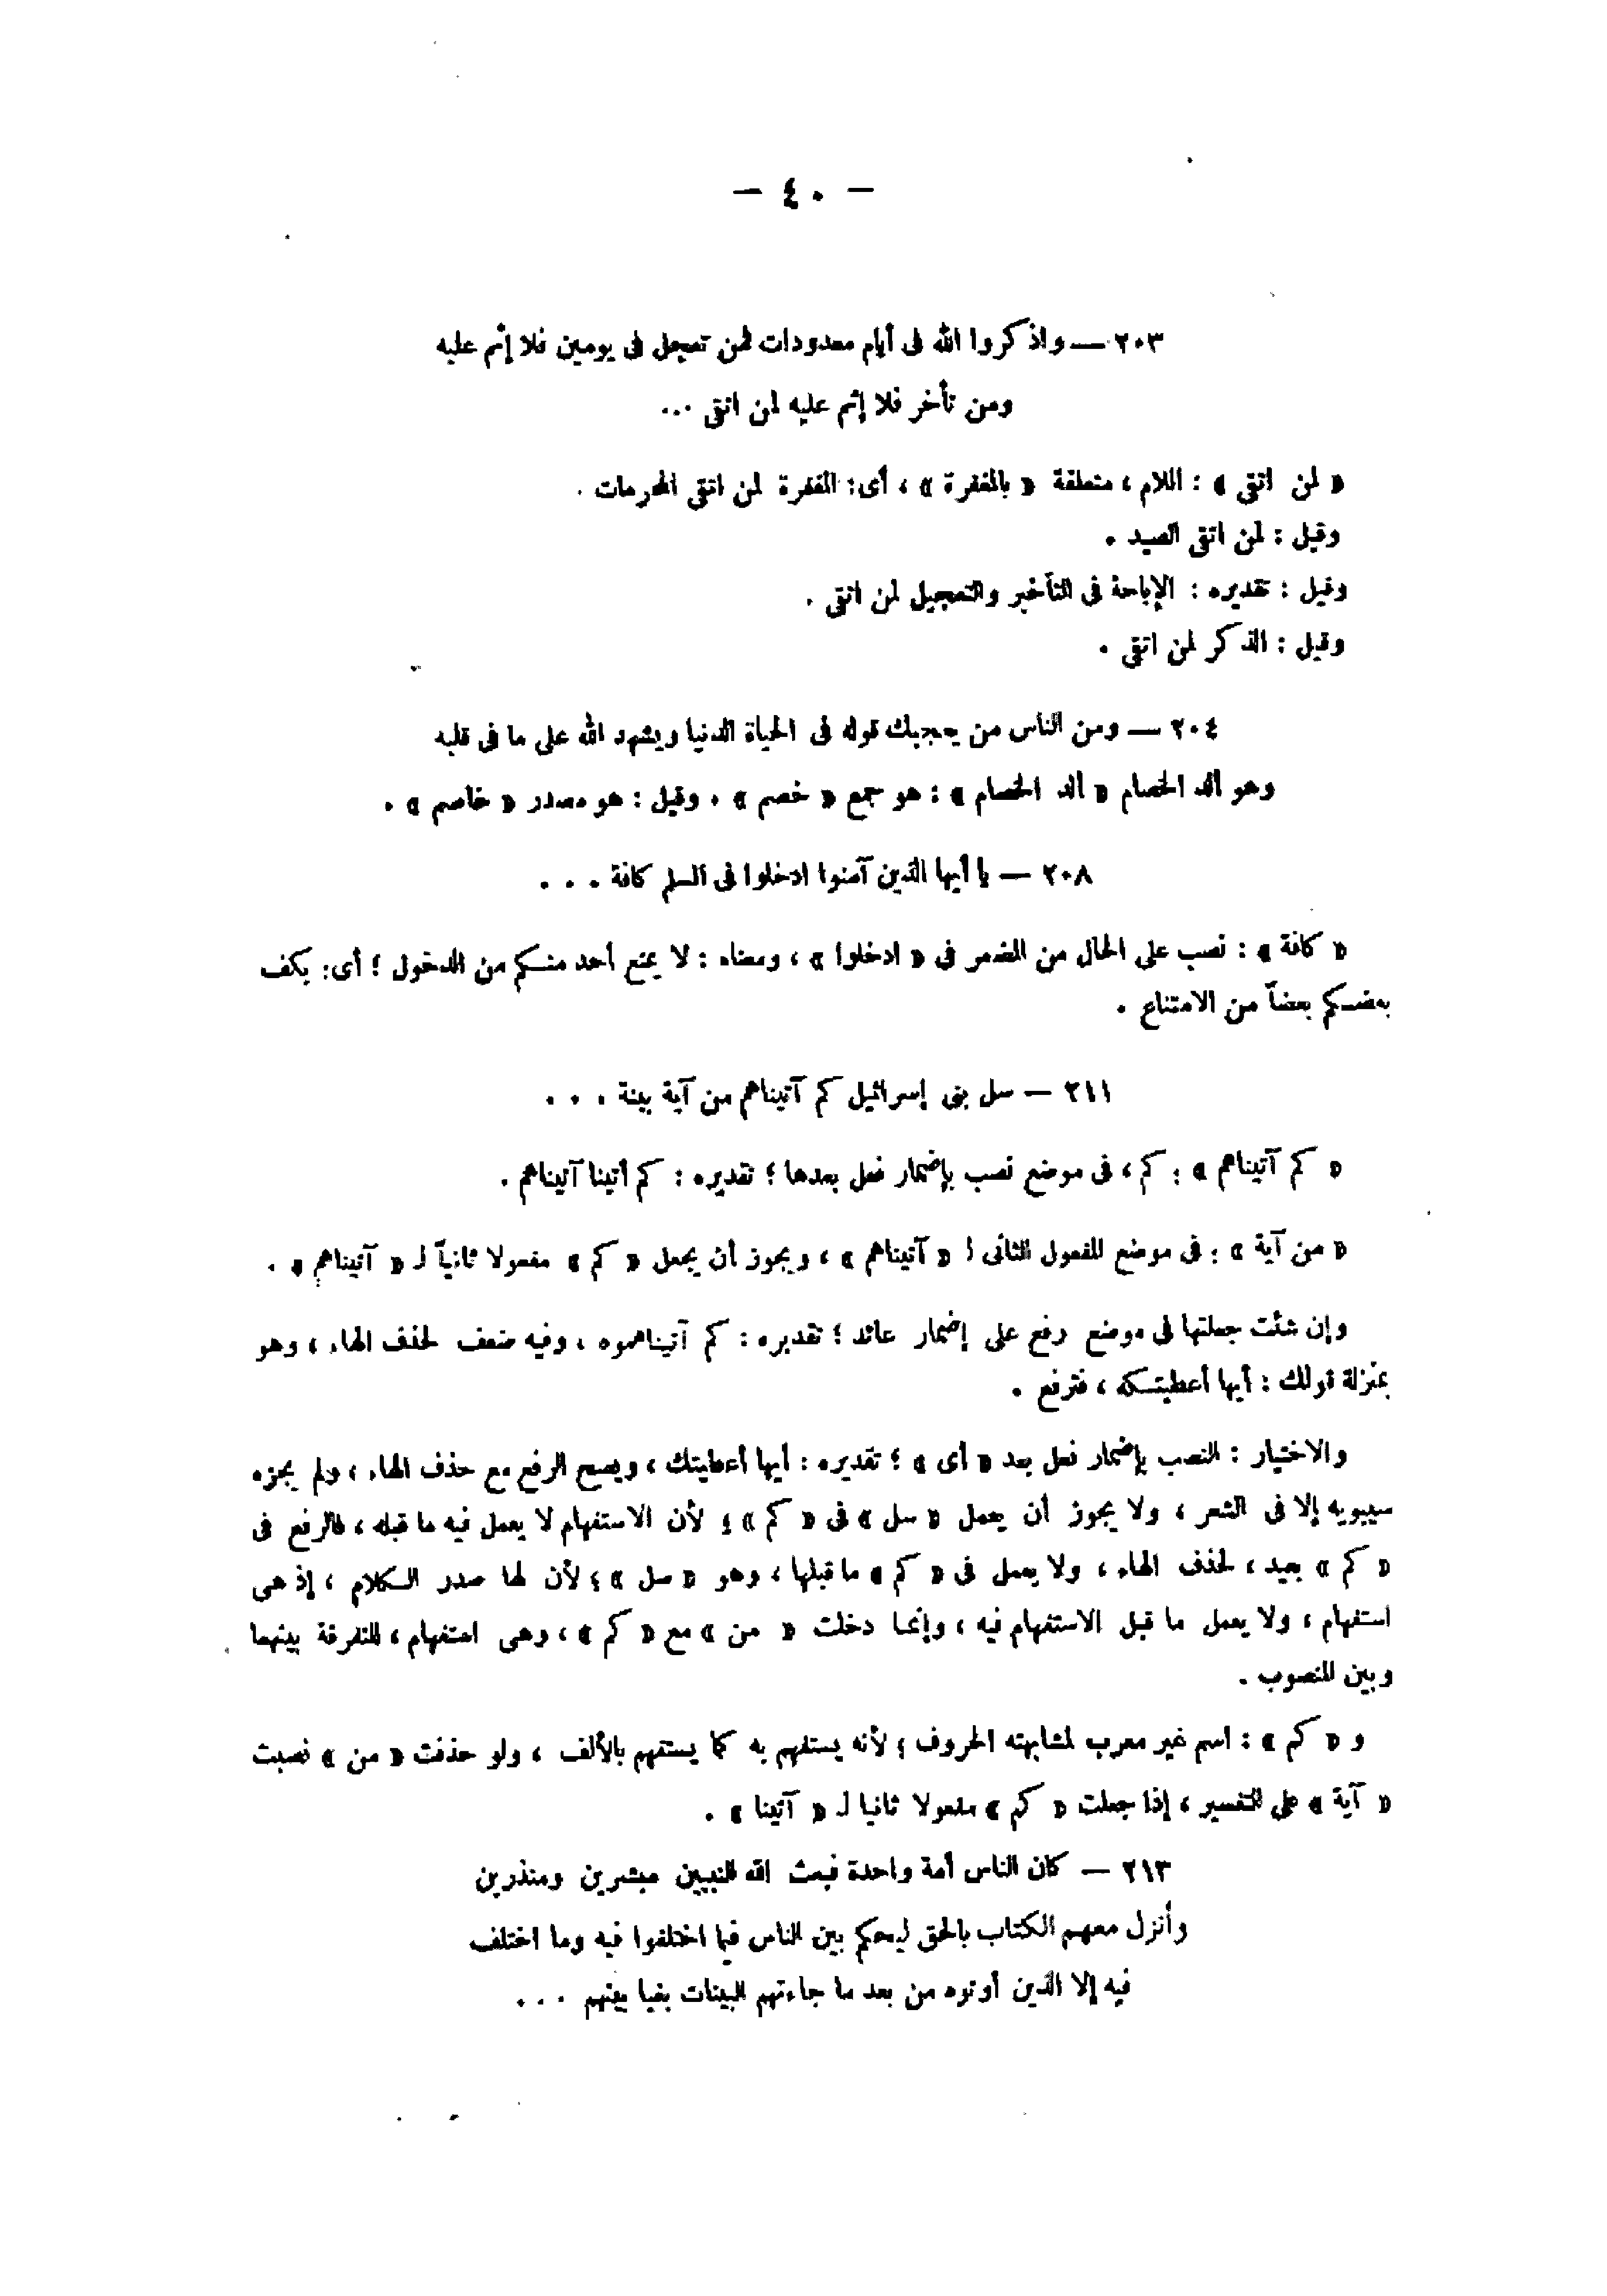 — ٤٠ —
٢٠٣ — واذكروا الله فى أيام معدودات فمن تعجل فى يومين فلا إثم عليه
ومن تأخر فلا إثم عليه لمن اتقى ...
« لمن اتقى » : اللام ، متعلقة « بالمغفرة » ، أى: المغفرة لمن اتقى المحرمات .
وقيل : لمن اتقى الصيد .
وقيل : تقديره : الإباحة فى التأخير والتعجيل لمن اتقى .
وقيل : الذكر لمن اتقى .
٢٠٤ — ومن الناس من يعجبك قوله فى الحياة الدنيا ويشهد الله على ما فى قلبه
وهو ألد الخصام « ألد الخصام » : هو جمع « خصم » . وقيل : هو مصدر « خاصم » .
٢٠٨ — يا أيها الذين آمنوا ادخلوا فى السلم كافة . . .
« كافة » : نصب على الحال من المضمر فى « ادخلوا » ، ومعناه : لا يمنع أحد منكم من الدخول ؛ أى: يكف
بعضكم بعضاً من الامتناع .
٢١١ — سل بنى إسرائيل كم آتيناهم من آية بينة . . .
« كم آتيناهم » : كم ، فى موضع نصب بإضمار فعل بعدها ؛ تقديره : كم أتينا آتيناهم .
« من آية » : فى موضع المفعول الثانى لـ « آتيناهم » ، ويجوز أن يجعل « كم » مفعولا ثانياً لـ « آتيناهم » .
وإن شئت جعلتها فى موضع رفع على إضمار عائد ؛ تقديره : كم آتيناهموه ، وفيه ضعف لحذف الهاء ، وهو
بمنزلة قولك : أيها أعطيتكه ، فترفع .
والاختيار : النصب بإضمار فعل بعد « أى » ؛ تقديره : أيها أعطيتك ، ويصح الرفع مع حذف الهاء ، ولم يجزه
سيبويه إلا فى الشعر ، ولا يجوز أن يعمل « سل » فى « كم » ؛ لأن الاستفهام لا يعمل فيه ما قبله ، فالرفع فى
« كم » بعيد ، لحذف الهاء ، ولا يعمل فى « كم » ما قبلها ، وهو « سل » ؛ لأن لها صدر الكلام ، إذ هى
استفهام ، ولا يعمل ما قبل الاستفهام فيه ، وإنما دخلت « من » مع « كم » ، وهى استفهام ، للتفرقة بينهما
وبين المنصوب .
و « كم » : اسم غير معرب لمشابهته الحروف ؛ لأنه يستفهم به كما يستفهم بالألف ، ولو حذفت « من » نصبت
« آية » على التفسير ، إذا جعلت « كم » مفعولا ثانيا لـ « آتينا » .
٢١٣ — كان الناس أمة واحدة فبعث الله النبيين مبشرين ومنذرين
وأنزل معهم الكتاب بالحق ليحكم بين الناس فيما اختلفوا فيه وما اختلف
فيه إلا الذين أوتوه من بعد ما جاءتهم البينات بغيا بينهم . . .